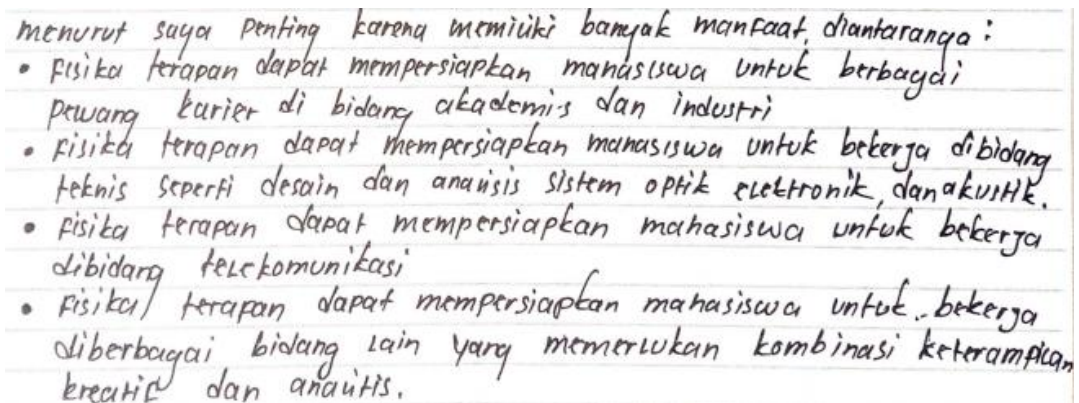 menurut saya penting karena memiliki banyak manfaat, diantaranya :
• Fisika terapan dapat mempersiapkan mahasiswa untuk berbagai
peluang karier di bidang akademis dan industri
• Fisika terapan dapat mempersiapkan mahasiswa untuk bekerja dibidang
teknis seperti desain dan analisis sistem optik elektronik, dan akustik.
• Fisika terapan dapat mempersiapkan mahasiswa untuk bekerja
dibidang telekomunikasi
• Fisika terapan dapat mempersiapkan mahasiswa untuk bekerja
diberbagai bidang lain yang memerlukan kombinasi keterampilan
kreatif dan analitis.